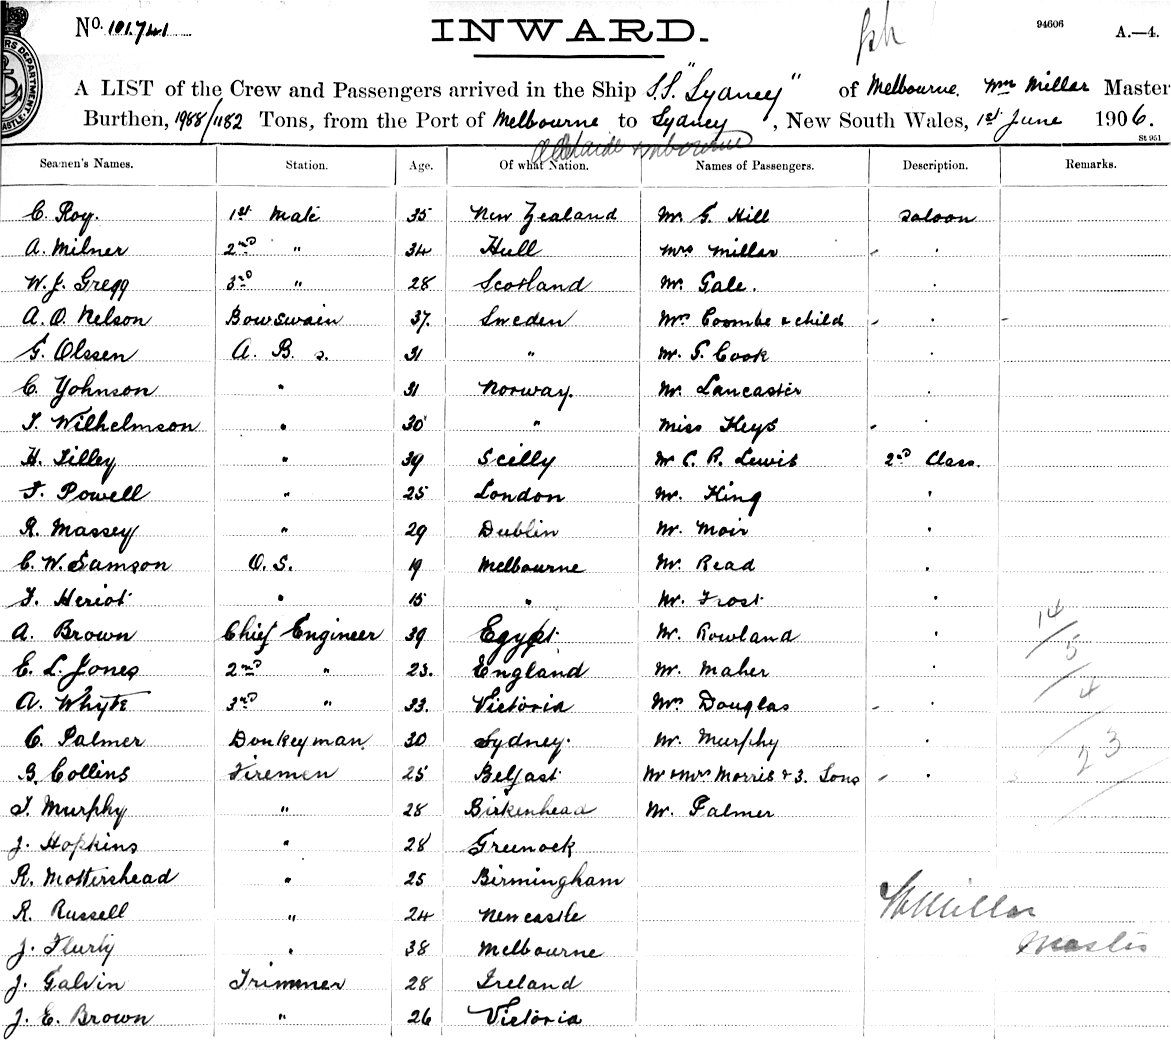 No. 101.741 INWARD. 94606 A.—4.
A LIST of the Crew and Passengers arrived in the Ship S.S. "Sydney" of Melbourne. Wm Millar Master
Burthen, 1988/1182 Tons, from the Port of Melbourne to Sydney, New South Wales, 1st June 1906.
St 951
Seamen's Names. Station. Age. Of what Nation. Names of Passengers. Description. Remarks.
C. Roy. 1st Mate 35 New Zealand Mr G. Hill Saloon
A. Milner 2nd " 34 Hull Mrs Millar "
W. J. Gregg 3rd " 28 Scotland Mr Gale. "
A. O. Nelson Bowswain 37. Sweden Mrs Coombe & child "
G. Olssen A. B s. 31 " Mr. S. Cook "
C. Yohnson " 31 Norway. Mr. Lancaster "
T. Wilhelmson " 30 " Miss Keys "
H. Tilley " 39 Scilly Mr C. R. Lewis 2nd Class.
F. Powell " 25 London Mr. King "
R. Massey " 29 Dublin Mr. Moir "
C. W. Samson O. S. 19 Melbourne Mr. Read "
F. Heriot " 15 " Mr. Frost "
A. Brown Chief Engineer 39 Egypt Mr. Rowland " 14
E. L. Jones 2nd " 23. England Mr. Maher " 5
A. Whyte 3rd " 33. Victoria Mrs Douglas " 4
C. Palmer Donkeyman 30 Sydney. Mr. Murphy " 23
G. Collins Firemen 25 Belfast Mr & Mrs Morris & 3. Sons "
T. Murphy " 28 Birkenhead Mr. Palmer
J. Hopkins " 28 Greenock
R. Mottershead " 25 Birmingham
R. Russell " 24 Newcastle WMillar
J. Flurty " 38 Melbourne Master
J. Galvin Trimmer 28 Ireland
J. E. Brown " 26 Victoria